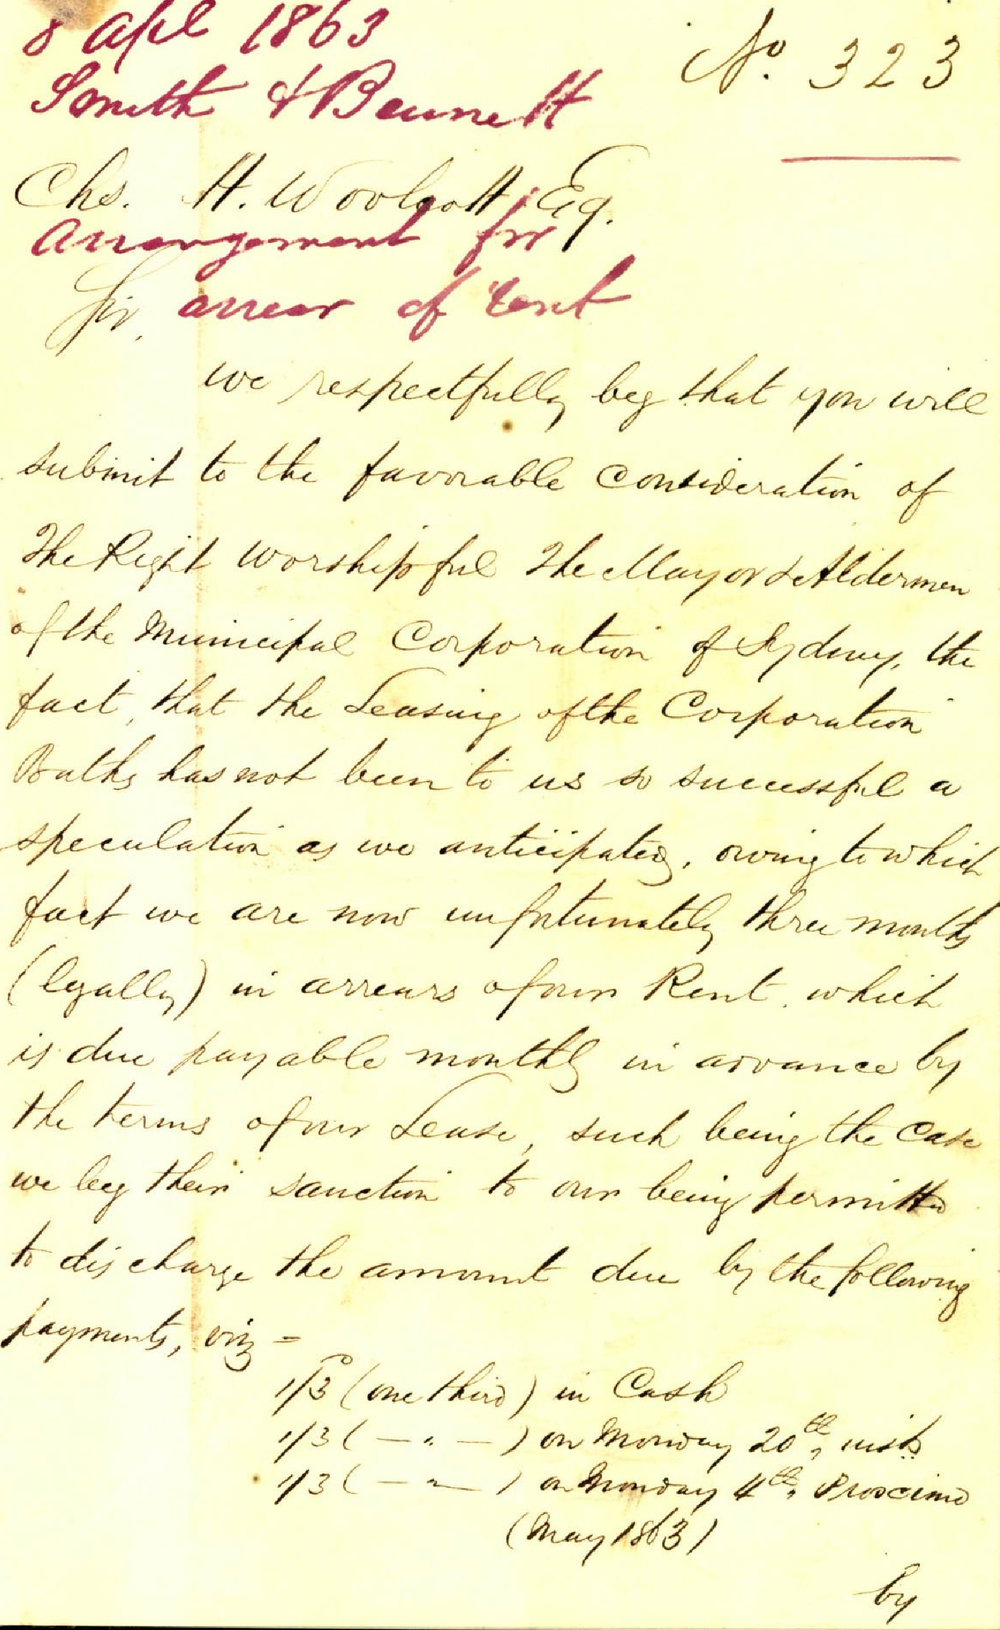 8 Apl 1863
No. 323
Smith & Bennett
Chs. H. Woolcott, Eq.
Arrangement for
Sir, arrear of rent
we respectfully beg that you will
submit to the favorable consideration of
The Right Worshipful The Mayor & Aldermen
of the Municipal Corporation of Sydney, the
fact, that the Leasing of the Corporation
Baths has not been to us so successful a
speculation as we anticipated, owing to which
fact we are now unfortunately three months
(legally) in arrears of our Rent. which
is due payable monthly in advance by
the terms of our Lease, such being the case
we beg their sanction to our being permitted
to discharge the amount due by the following
payments, viz -
1/3 (one third) in Cash
1/3 ( — " — ) on Monday 20th, inst.
1/3 ( — " — ) on Monday 4th, Proximo
(May 1863)
by